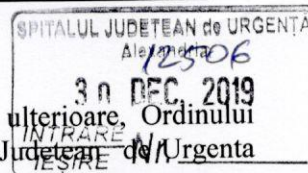 SPITALUL JUDEȚEAN de URGENȚĂ
Alexandria
12506
30 DEC. 2019
ulterioare, Ordinului
INTRARE
IEȘIRE Nr.
Judetean de Urgenta